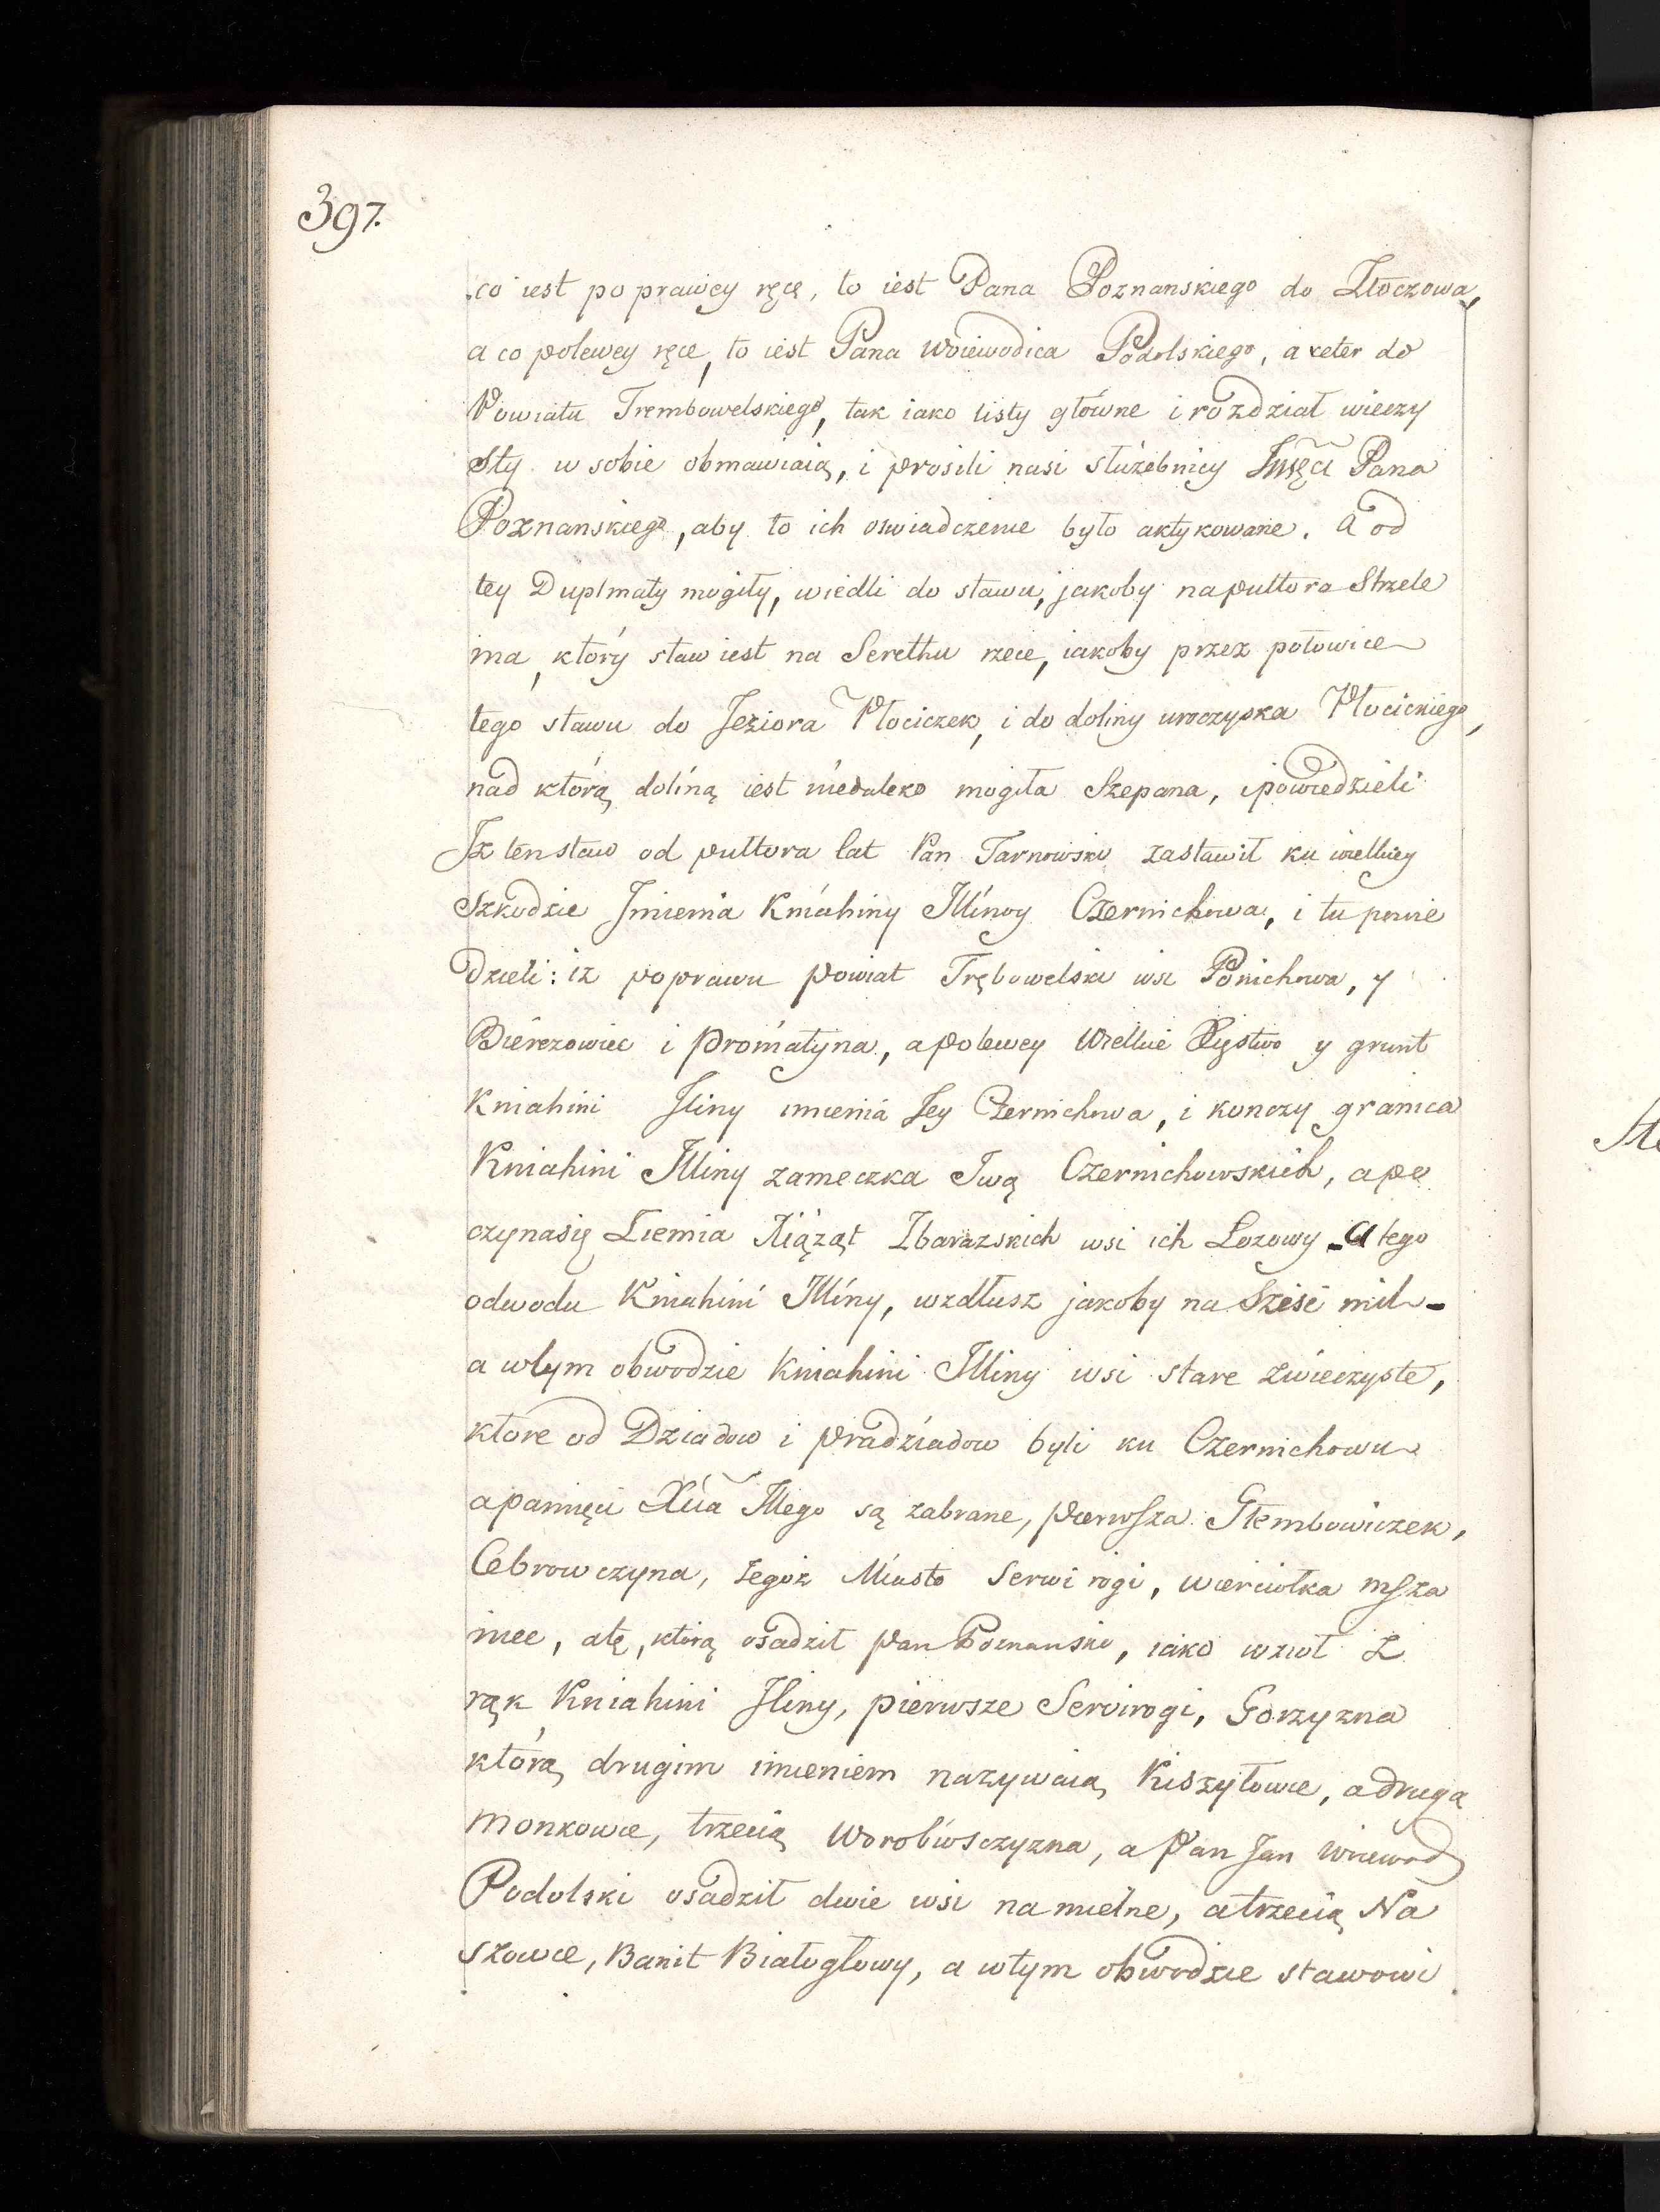 397.
co iest po prawey ręce, to iest Pana Poznanskiego do Złoczowa,
a co polewey ręce, to iest Pana Woiewodica Podolskiego, a reter do
Powiatu Trembowelskiego, tak iako listy główne i rozdział wieczy
sty w sobie obmawiaią, i prosili nasi służebnicy Pana
Poznanskiego, aby to ich oswiadczenie było aktykowane. A od
tey Duplmaty mogiły, wiedli do stawu, jakoby napułtora Strzele
ma, który staw iest na Serethu rzece, iakoby przez połowice
tego stawu do Jeziora Płociczek, i do doliny uroczyska Płocickiego,
nad którą doliną iest niedaleko mogiła Szepana, ipowiedzieli
Iz tenstaw od pułtora lat Pan Tarnowski zastawił ku wielkiey
Szkodzie Jmienia Kniahiny Illinoy Czernichowa, i tu powie
dzieli: iz poprawu Powiat Trębowelski wsi Ponichowa, y
Bierezowiec i Promatyna, apolewey Wielkie Xięstwo y grunt
Kniahini Iliny imienia Jey Czernichowa, i konczy granica
Kniahini Illiny zameczka Iwą Czernichowskich, apo
czynasię Ziemia Xiążąt Zbarazskich wsi ich Lozowy - A tego
odwodu Kniahini Illiny, wzdłusz jakoby na Szesć mil -
a wtym obwodzie Kniahini Illiny wsi stare zwieczyste,
które od Dziadow i Pradziadow byli ku Czernichowu
apamięci Xcia Illego są zabrane, pierwsza Głembowiczek,
Cebrowczyna, tegoż Miasto Serwirogi, wierciołka msza
niec, atę, którą osadził Pan Poznanski, iako wzioł z
rąk Kniahini Iliny, pierwsze Serwirogi, Gorzyzna
którą drugim imieniem nazywaią Kiszyłowce, adruga
Monkowce, trzecią Worobiwsczyzna, a Pan Jan Wiewod
Podolski osadził dwie wsi namielne, atrzecią Na
szowce, Banit Białogłowy, a wtym obwodzie stawowi